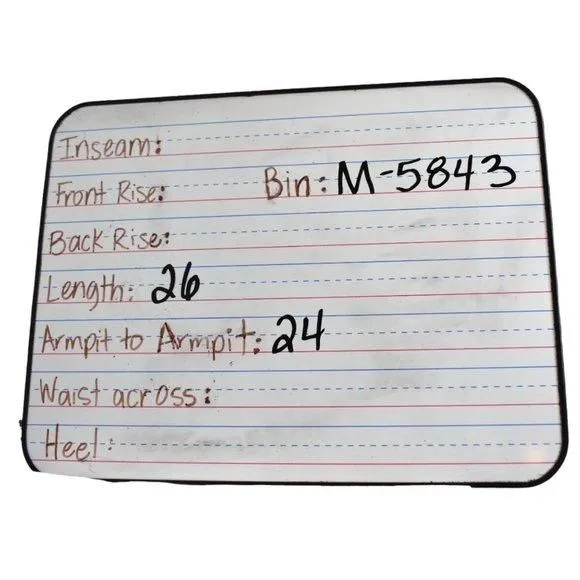 Inseam:
Front Rise: Bin: M-5843
Back Rise:
Length: 26
Armpit to Armpit: 24
Waist across:
Heel: